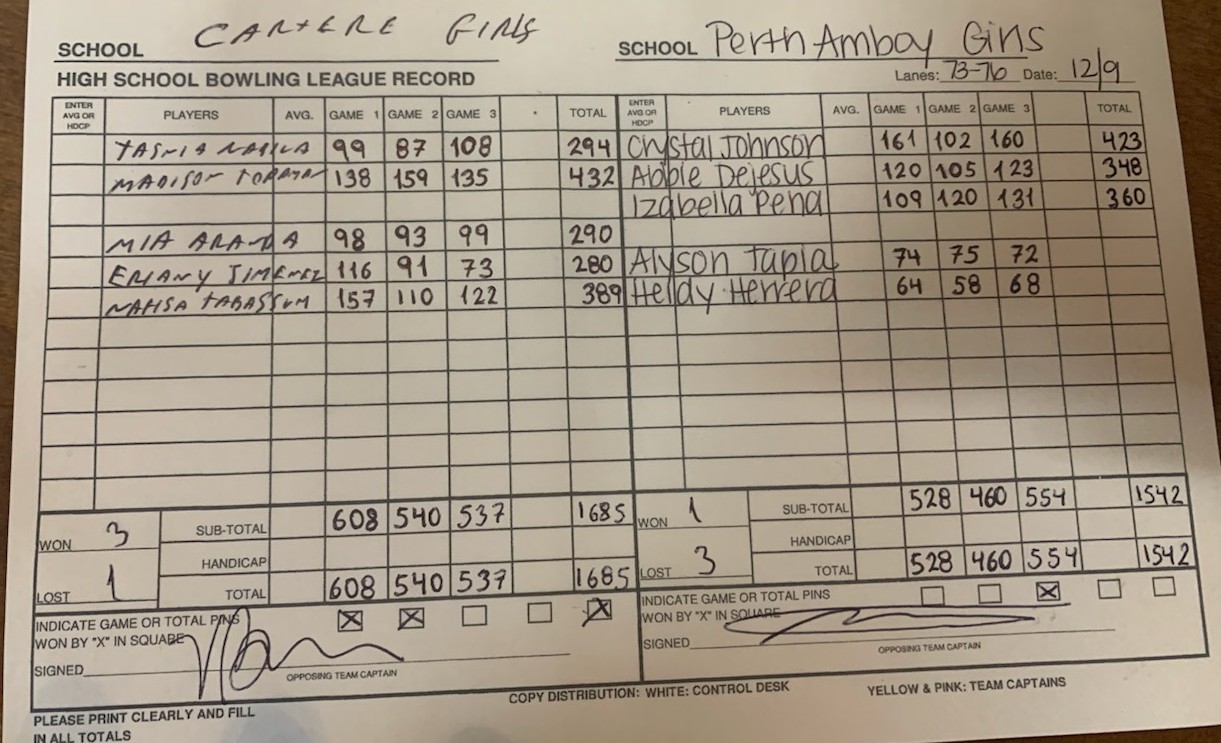 SCHOOL CARTERE GIRLS SCHOOL Perth Amboy Girls
HIGH SCHOOL BOWLING LEAGUE RECORD Lanes: 73-76 Date: 12/9
ENTER AVG OR HDCP PLAYERS AVG. GAME 1 GAME 2 GAME 3 TOTAL ENTER AVG OR HDCP PLAYERS AVG. GAME 1 GAME 2 GAME 3 TOTAL
TASNIA 99 87 108 294 Crystal Johnson 161 102 160 423
MADISON 138 159 135 432 Abbie Dejesus 120 105 123 348
Izabella Pena 109 120 131 360
MIA ARANDA 98 93 99 290
EMANY JIMENEZ 116 91 73 280 Alyson Tapia 74 75 72
NAFISA TABASSUM 157 110 122 389 Heidy Herrera 64 58 68
WON 3 SUB-TOTAL 608 540 537 1685 WON 1 SUB-TOTAL 528 460 554 1542
HANDICAP HANDICAP
LOST 1 TOTAL 608 540 537 1685 LOST 3 TOTAL 528 460 554 1542
INDICATE GAME OR TOTAL PINS INDICATE GAME OR TOTAL PINS
WON BY "X" IN SQUARE WON BY "X" IN SQUARE
SIGNED OPPOSING TEAM CAPTAIN SIGNED OPPOSING TEAM CAPTAIN
COPY DISTRIBUTION: WHITE: CONTROL DESK YELLOW & PINK: TEAM CAPTAINS
PLEASE PRINT CLEARLY AND FILL
IN ALL TOTALS